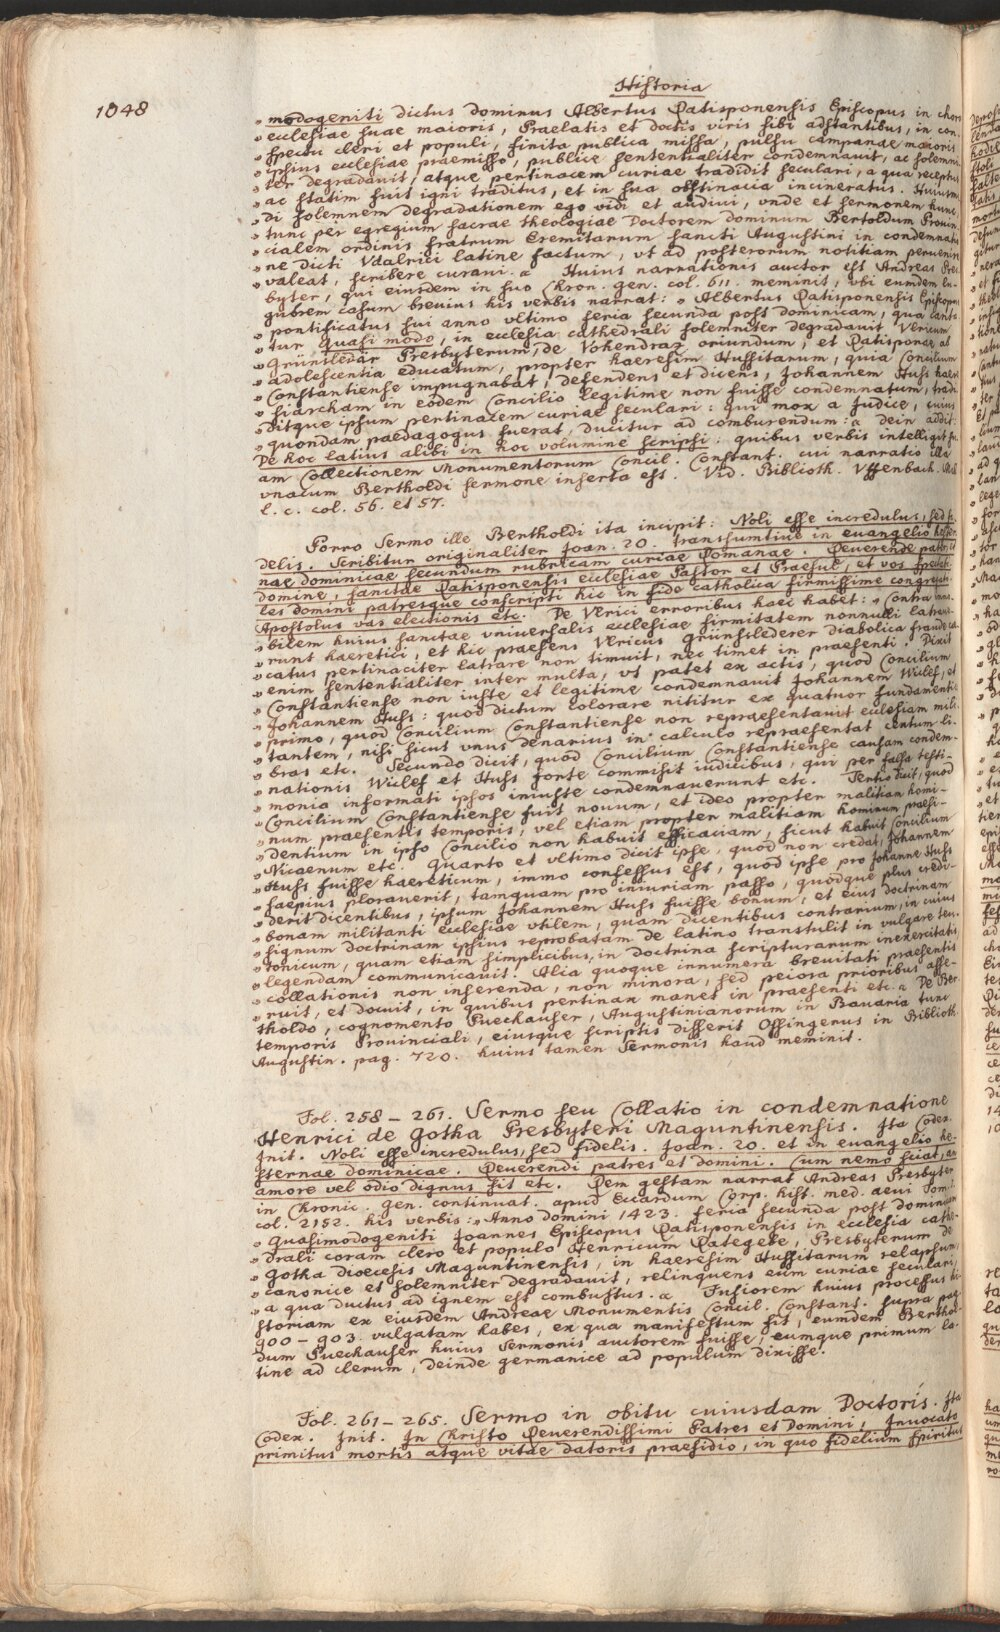 Historia
1048
„ modogeniti dictus dominus Albertus Ratisponensis Episcopus in choro
„ ecclesiae suae maioris, Praelatis et doctis viris sibi adstantibus, in con-
„ spectu cleri et populi, finita publica missa, pulsu campanae maioris
„ ipsius ecclesiae praemisso, publice sententialiter condemnavit, ac solemni-
„ ter degradavit, atque pertinacem curiae tradidit seculari, a qua receptus
„ ac statim fuit igni traditus, et in sua obstinacia incineratus. Huiusmo-
„ di solemnem degradationem ego vidi et audivi, vnde et sermonem hunc
„ tunc per egregium sacrae theologiae Doctorem dominum Bertoldum Provin-
„ cialem ordinis fratrum Eremitarum sancti Augustini in condemnatio-
„ ne dicti Vdalrici latine factum, vt ad posterorum notitiam pervenire
„ valeat, scribere curavi. „ Huius narrationis auctor est Andreas Pres-
byter, qui eiusdem in suo Chron. gen. col. 611. meminit, vbi eumdem lu-
gubrem casum brevius his verbis narrat: „ Albertus Ratisponensis Episcopus
„ pontificatus sui anno vltimo feria secunda post dominicam, qua canta-
„ tur Quasi modo, in ecclesia cathedrali solemniter degradavit Vlricum
„ Grünsledär Presbyterum, de Vohendraz oriundum, et Ratisponae ab
„ adolescentia educatum, propter haeresim Hussitarum, quia Concilium
„ Constantiense impugnabat, defendens et dicens, Johannem Huss haere-
„ siarcham in eodem Concilio legitime non fuisse condemnatum, tradi-
„ ditque ipsum pertinacem curiae seculari: qui mox a Judice, cuius
„ quondam paedagogus fuerat, ducitur ad comburendum: „ dein addit:
De hoc latius alibi in hoc volumine scripsi: quibus verbis intelligit su-
am Collectionem Monumentorum Concil. Constant. cui narratio illa
vnacum Bertholdi sermone inserta est. Vid. Biblioth. Vffenbach. Msc.
l. c. col. 56. et 57.
Porro Sermo ille Bertholdi ita incipit: Noli esse incredulus, sed fi-
delis. Scribitur originaliter Joan. 20. transsumtive in evangelio hester-
nae dominicae secundum rubricam curiae Romanae. Reverende pater et
domine, sanctae Ratisponensis ecclesiae Pastor et Praesul, et vos spectabi-
les domini patresque conscripti hic in fide catholica firmissime congregati.
Apostolus vas electionis etc. De Vlrici erroribus haec habet: „ Contra
„ bilem huius sanctae vniversalis ecclesiae firmitatem nonnulli latrave-
„ runt haeretici, et hic praesens Vlricus Grünslederer diabolica fraude ca-
„ catus pertinaciter latrare non timuit, nec timet in praesenti. Dixit
„ enim sententialiter inter multa, vt patet ex actis, quod Concilium
„ Constantiense non iuste et legitime condemnavit Johannem Wiclef, et
„ Johannem Huss: quod dictum colorare nititur ex quatuor fundamentis
„ primo, quod Concilium Constantiense non repraesentavit ecclesiam mili-
„ tantem, nisi sicut vnus denarius in calculo repraesentat centum li-
„ bras etc. Secundo dicit, quod Concilium Constantiense causam condem-
„ nationis Wiclef et Huss forte commisit iudicibus, qui per falsa testi-
„ monia informati ipsos iniuste condemnaverunt etc. Tertio dicit, quod
„ Concilium Constantiense fuit novum, et ideo propter malitiam homi-
„ num praesentis temporis, vel etiam propter malitiam hominum praesi-
„ dentium in ipso Concilio non habuit efficaciam, sicut habuit Concilium
„ Nicaenum etc. Quarto et vltimo dicit ipse, quod non credat, Johannem
„ Huss fuisse haereticum, immo confessus est, quod ipse pro Johanne Huss
„ saepius ploraverit, tamquam pro iniuriam passo, quodque plus credi-
„ derit dicentibus, ipsum Johannem Huss fuisse bonum, et eius doctrinam
„ bonam militanti ecclesiae vtilem, quam dicentibus contrarium, in cuius
„ signum doctrinam ipsius reprobatam de latino transtulit in vulgare teu-
„ tonicum, quam etiam simplicibus, in doctrina scripturarum inexercitatis
„ legendam communicavit. Alia quoque innumera brevitati praesentis
„ collationis non inserenda, non minora, sed peiora prioribus asse-
„ ruit, et docuit, in quibus pertinax manet in praesenti etc. „ De Ber-
tholdo, cognomento Puechauser, Augustinianorum in Bavaria tunc
temporis Provinciali, eiusque scriptis disserit Ossingerus in Biblioth.
Augustin. pag. 720. huius tamen Sermonis haud meminit.
Fol. 258 – 261. Sermo seu Collatio in condemnatione
Henrici de Gotha Presbyteri Maguntinensis. Ita Codex.
Init. Noli esse incredulus, sed fidelis. Joan. 20. et in evangelio he-
sternae dominicae. Reverendi patres et domini. Cum nemo sciat, an
amore vel odio dignus sit etc. Rem gestam narrat Andreas Presbyter
in Chronic. gen. continuat. apud Eccardum Corp. hist. med. aevi Tom. I.
col. 2152. his verbis: „ Anno domini 1423. feria secunda post dominicam
„ Quasimodogeniti Joannes Episcopus Ratisponensis in ecclesia cathe-
„ drali coram clero et populo Henricum Rategeke, Presbyterum de
„ Gotha dioecesis Maguntinensis, in haeresim Hussitarum relapsum,
„ canonice et solemniter degradavit, relinquens eum curiae seculari,
„ a qua ductus ad ignem est combustus. „ Fusiorem huius processus hi-
storiam ex eiusdem Andreae Monumentis Concil. Constant. supra pag.
900 – 903. vulgatam habes, ex qua manifestum fit, eumdem Berthol-
dum Puechauser huius Sermonis auctorem fuisse, eumque primum la-
tine ad clerum, deinde germanice ad populum dixisse.
Fol. 261 – 265. Sermo in obitu cuiusdam Doctoris. Ita
Codex. Init. In Christo Reverendissimi Patres et Domini, Invocato
primitus mortis atque vitae datoris praesidio, in quo fidelium spiritus